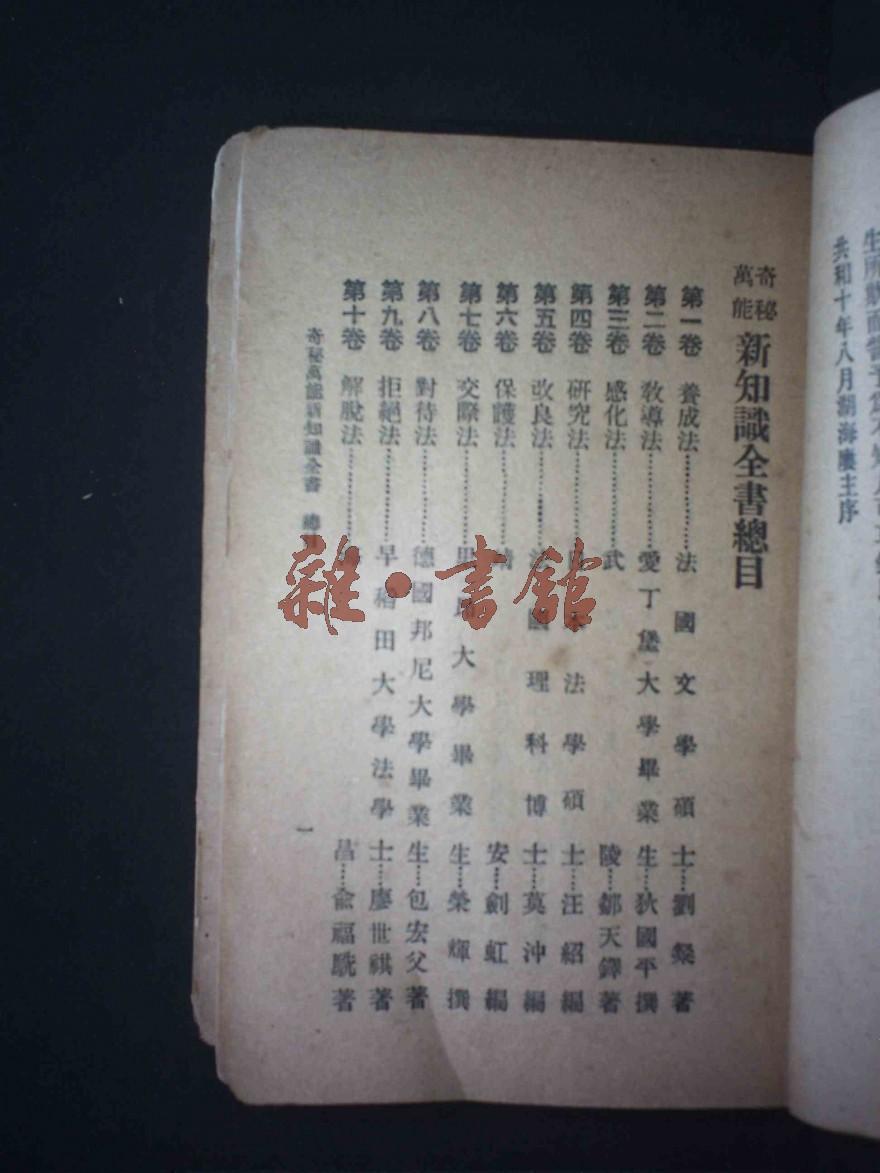 共和十年八月湖海廔主序
奇秘萬能 新知識全書總目
第一卷 養成法⋯⋯法國文學碩士⋯⋯劉 著
第二卷 敎導法⋯⋯愛丁堡大學畢業生⋯⋯狄國平撰
第三卷 感化法⋯⋯武陵⋯⋯鄒天鐸著
第四卷 研究法⋯⋯法學碩士⋯⋯汪紹編
第五卷 改良法⋯⋯理科博士⋯⋯莫沖編
第六卷 保護法⋯⋯安⋯⋯劍虹編
第七卷 交際法⋯⋯大學畢業生⋯⋯榮輝撰
第八卷 對待法⋯⋯德國邦尼大學畢業生⋯⋯包宏父著
第九卷 拒絕法⋯⋯早稻田大學法學士⋯⋯廖世祺著
第十卷 解脫法⋯⋯昌⋯⋯兪福 著
奇秘萬能新知識全書 總
一
雜·書館